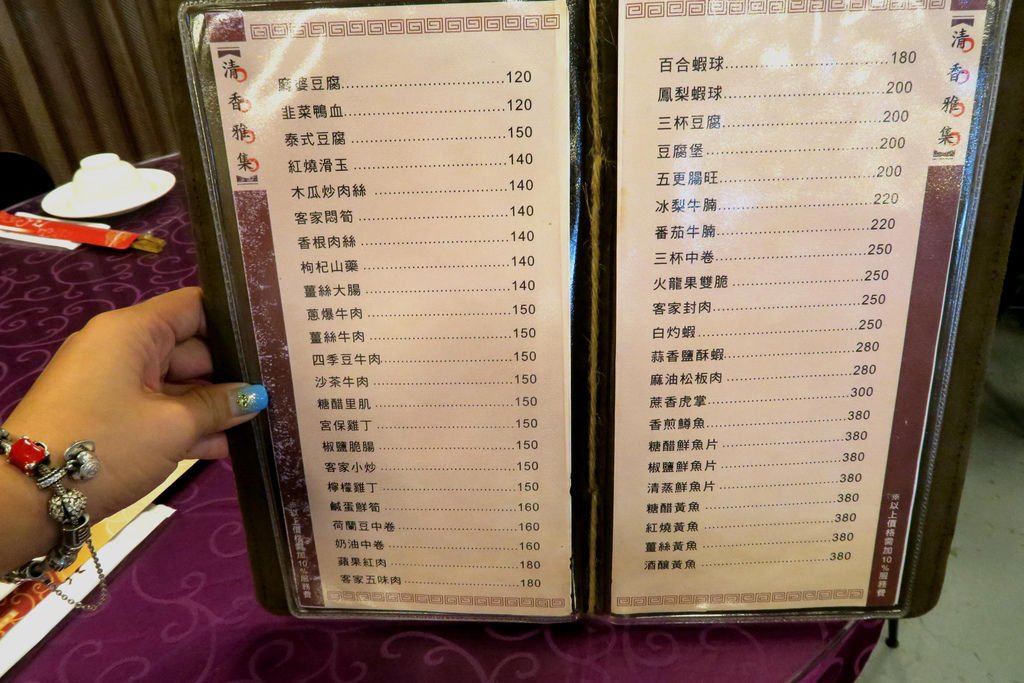 清香雅集
麻婆豆腐 120
韭菜鴨血 120
泰式豆腐 150
紅燒滑玉 140
木瓜炒肉絲 140
客家悶筍 140
香根肉絲 140
枸杞山藥 140
薑絲大腸 140
蔥爆牛肉 150
薑絲牛肉 150
四季豆牛肉 150
沙茶牛肉 150
糖醋里肌 150
宮保雞丁 150
椒鹽脆腸 150
客家小炒 150
檸檬雞丁 150
鹹蛋鮮筍 160
荷蘭豆中卷 160
奶油中卷 160
蘋果紅肉 180
客家五味肉 180
※以上價格需加10%服務費
清香雅集
百合蝦球 180
鳳梨蝦球 200
三杯豆腐 200
豆腐堡 200
五更腸旺 200
冰梨牛腩 220
番茄牛腩 220
三杯中卷 250
火龍果雙脆 250
客家封肉 250
白灼蝦 250
蒜香鹽酥蝦 280
麻油松板肉 280
蔗香虎掌 300
香煎鱒魚 380
糖醋鮮魚片 380
椒鹽鮮魚片 380
清蒸鮮魚片 380
糖醋黃魚 380
紅燒黃魚 380
薑絲黃魚 380
酒釀黃魚 380
※以上價格需加10%服務費